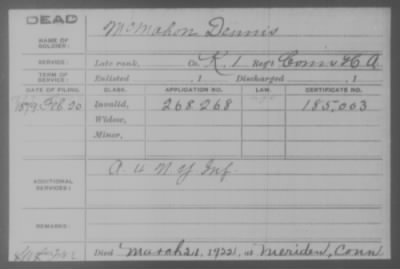 DEAD
NAME OF SOLDIER: McMahon Dennis
SERVICE: Late rank, Co. K. 1 Reg't Conn H A
TERM OF SERVICE: Enlisted , 1 Discharged , 1
DATE OF FILING. CLASS. APPLICATION NO. LAW. CERTIFICATE NO.
1879 Feb. 20 Invalid, 268.268 185,003
Widow,
Minor,
ADDITIONAL SERVICES: A 4 N Y Inf.
REMARKS:
Died March 21, 1922, at Meriden, Conn